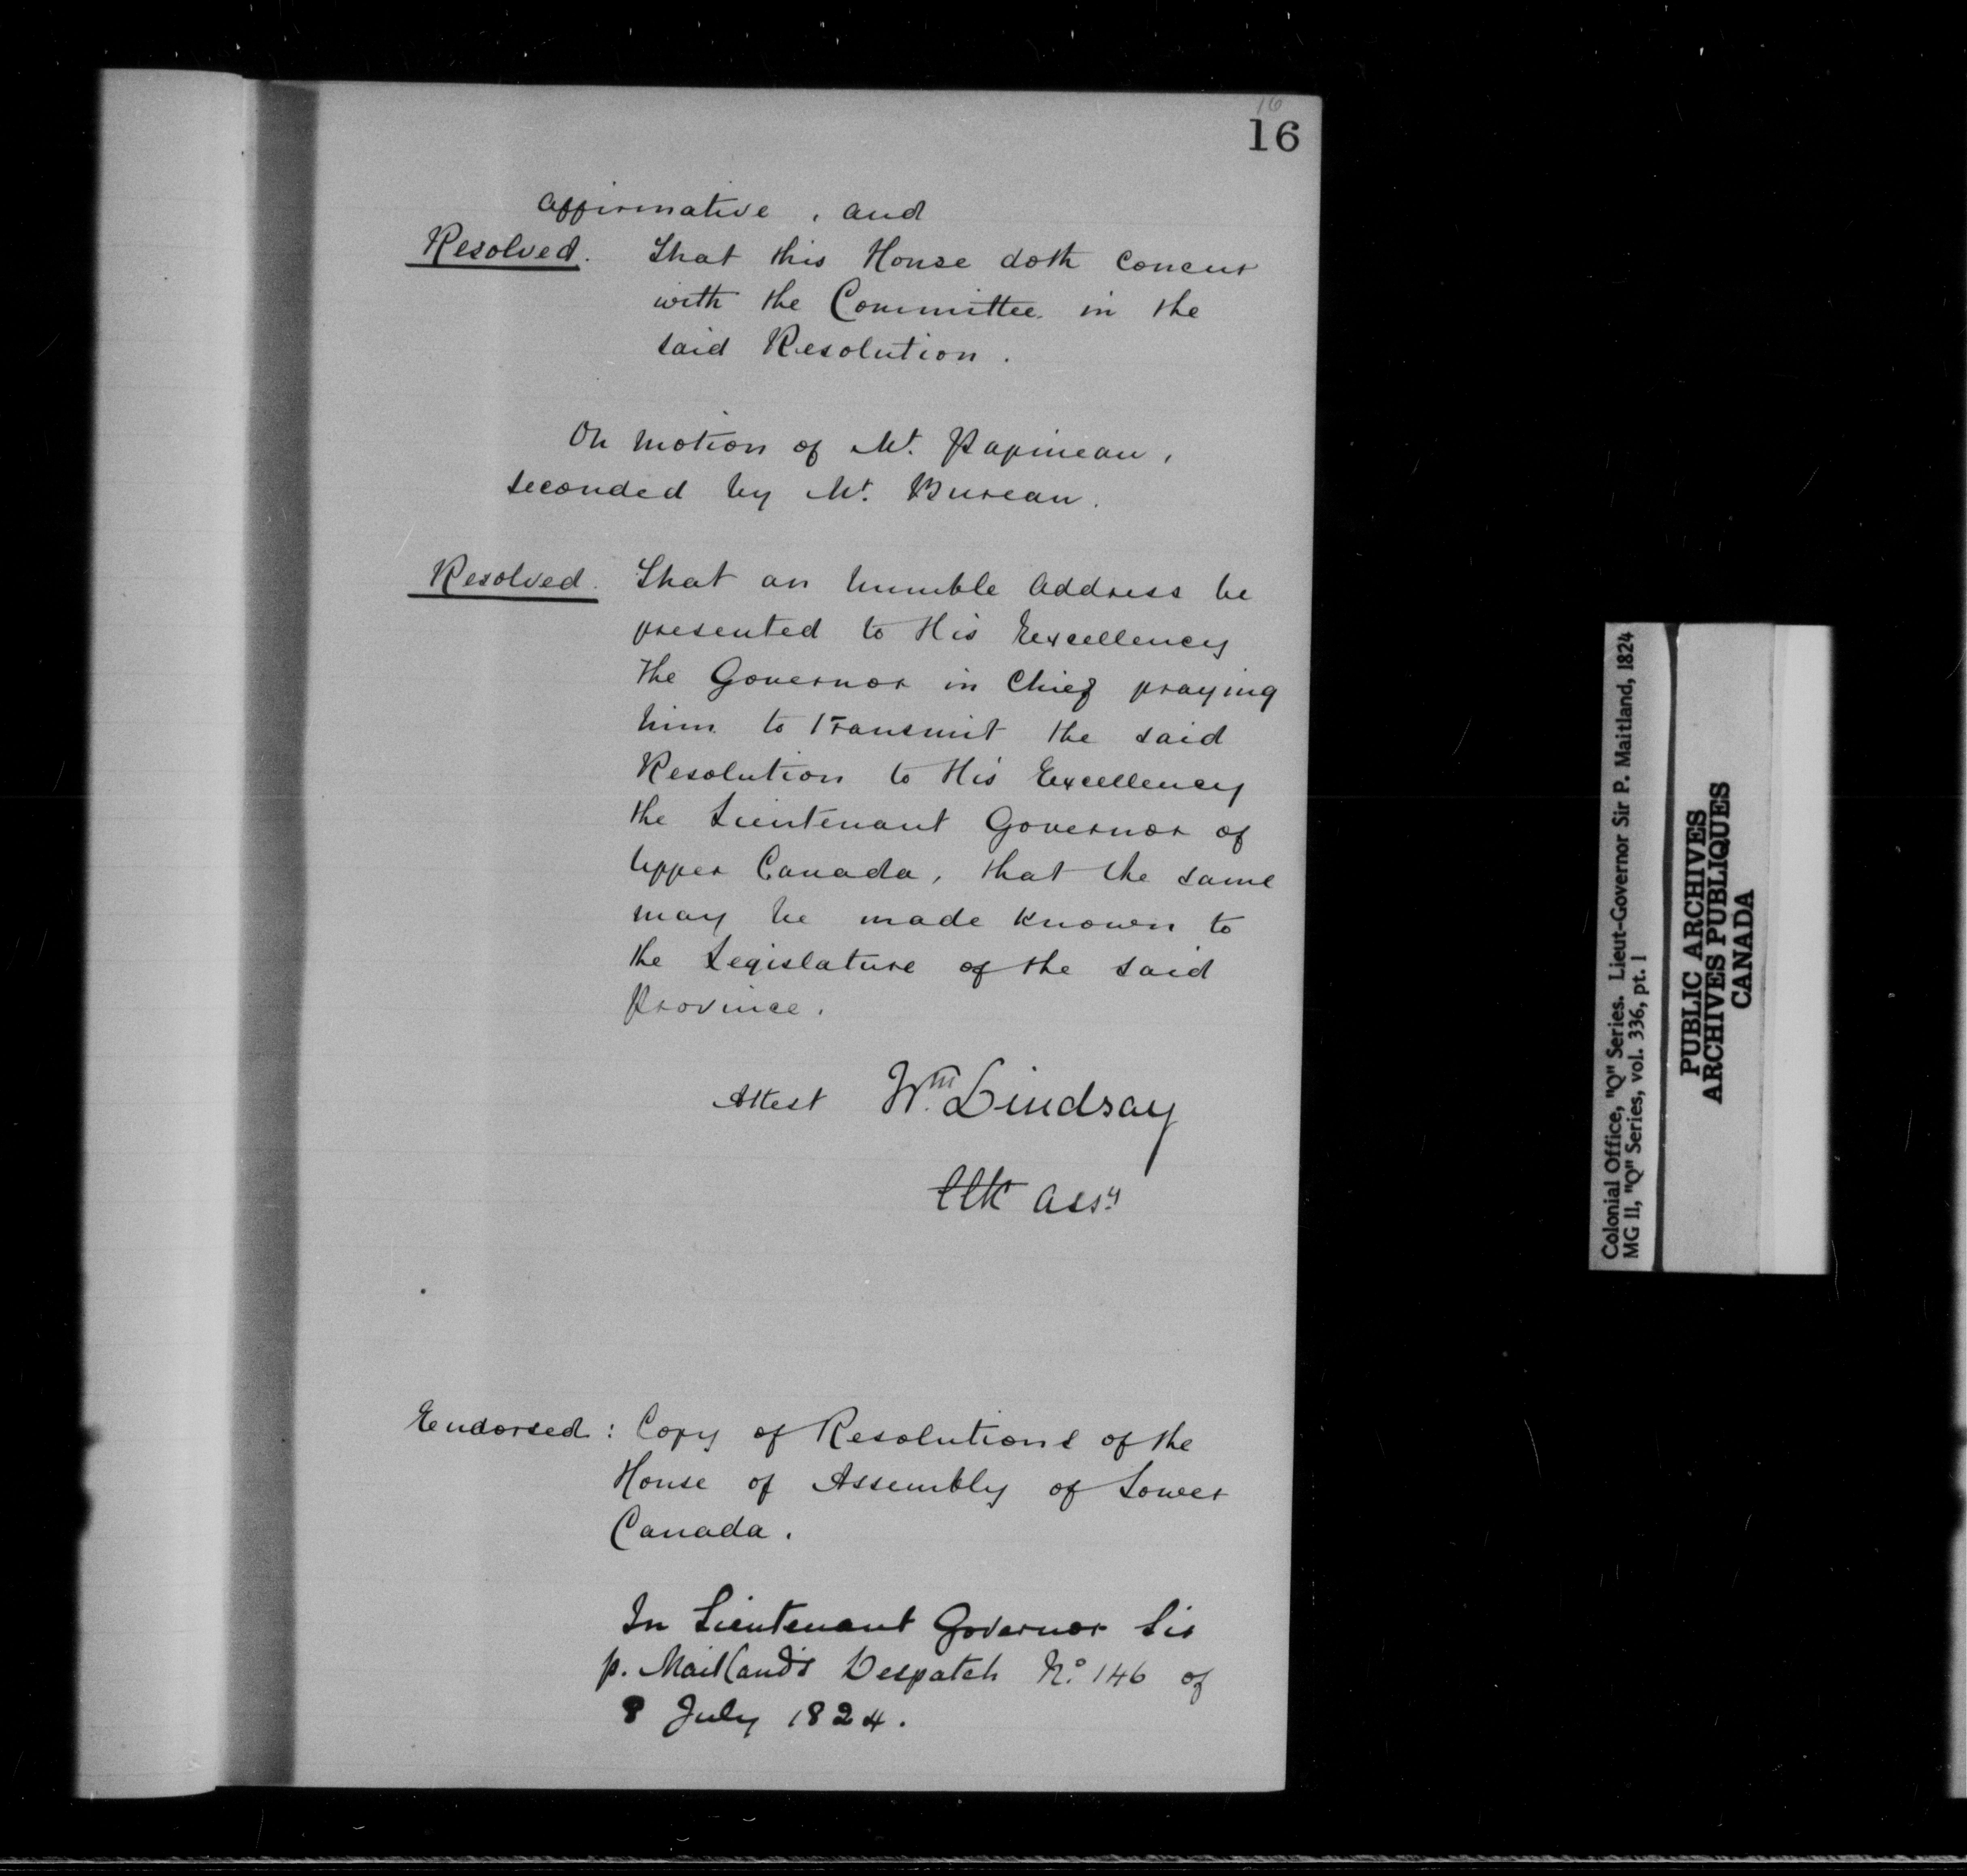 16
16
affirmative, and
Resolved. That this House doth concur
with the Committee in the
said Resolution.
On motion of Mr. Papineau,
seconded by Mr. Bureau.
Resolved. That an humble Address be
presented to His Excellency
the Governor in Chief praying
him to transmit the said
Resolution to His Excellency
the Lieutenant Governor of
Upper Canada, that the same
may be made known to
the Legislature of the said
Province.
Attest Wm. Lindsay
Clk Assy
Endorsed: Copy of Resolutions of the
House of Assembly of Lower
Canada.
In Lieutenant Governor Sir
P. Maitland's Despatch No. 146 of
8 July 1824.
Colonial Office, "Q" Series. Lieut-Governor Sir P. Maitland, 1824
MG 11, "Q" Series, vol. 336, pt. 1
PUBLIC ARCHIVES
ARCHIVES PUBLIQUES
CANADA